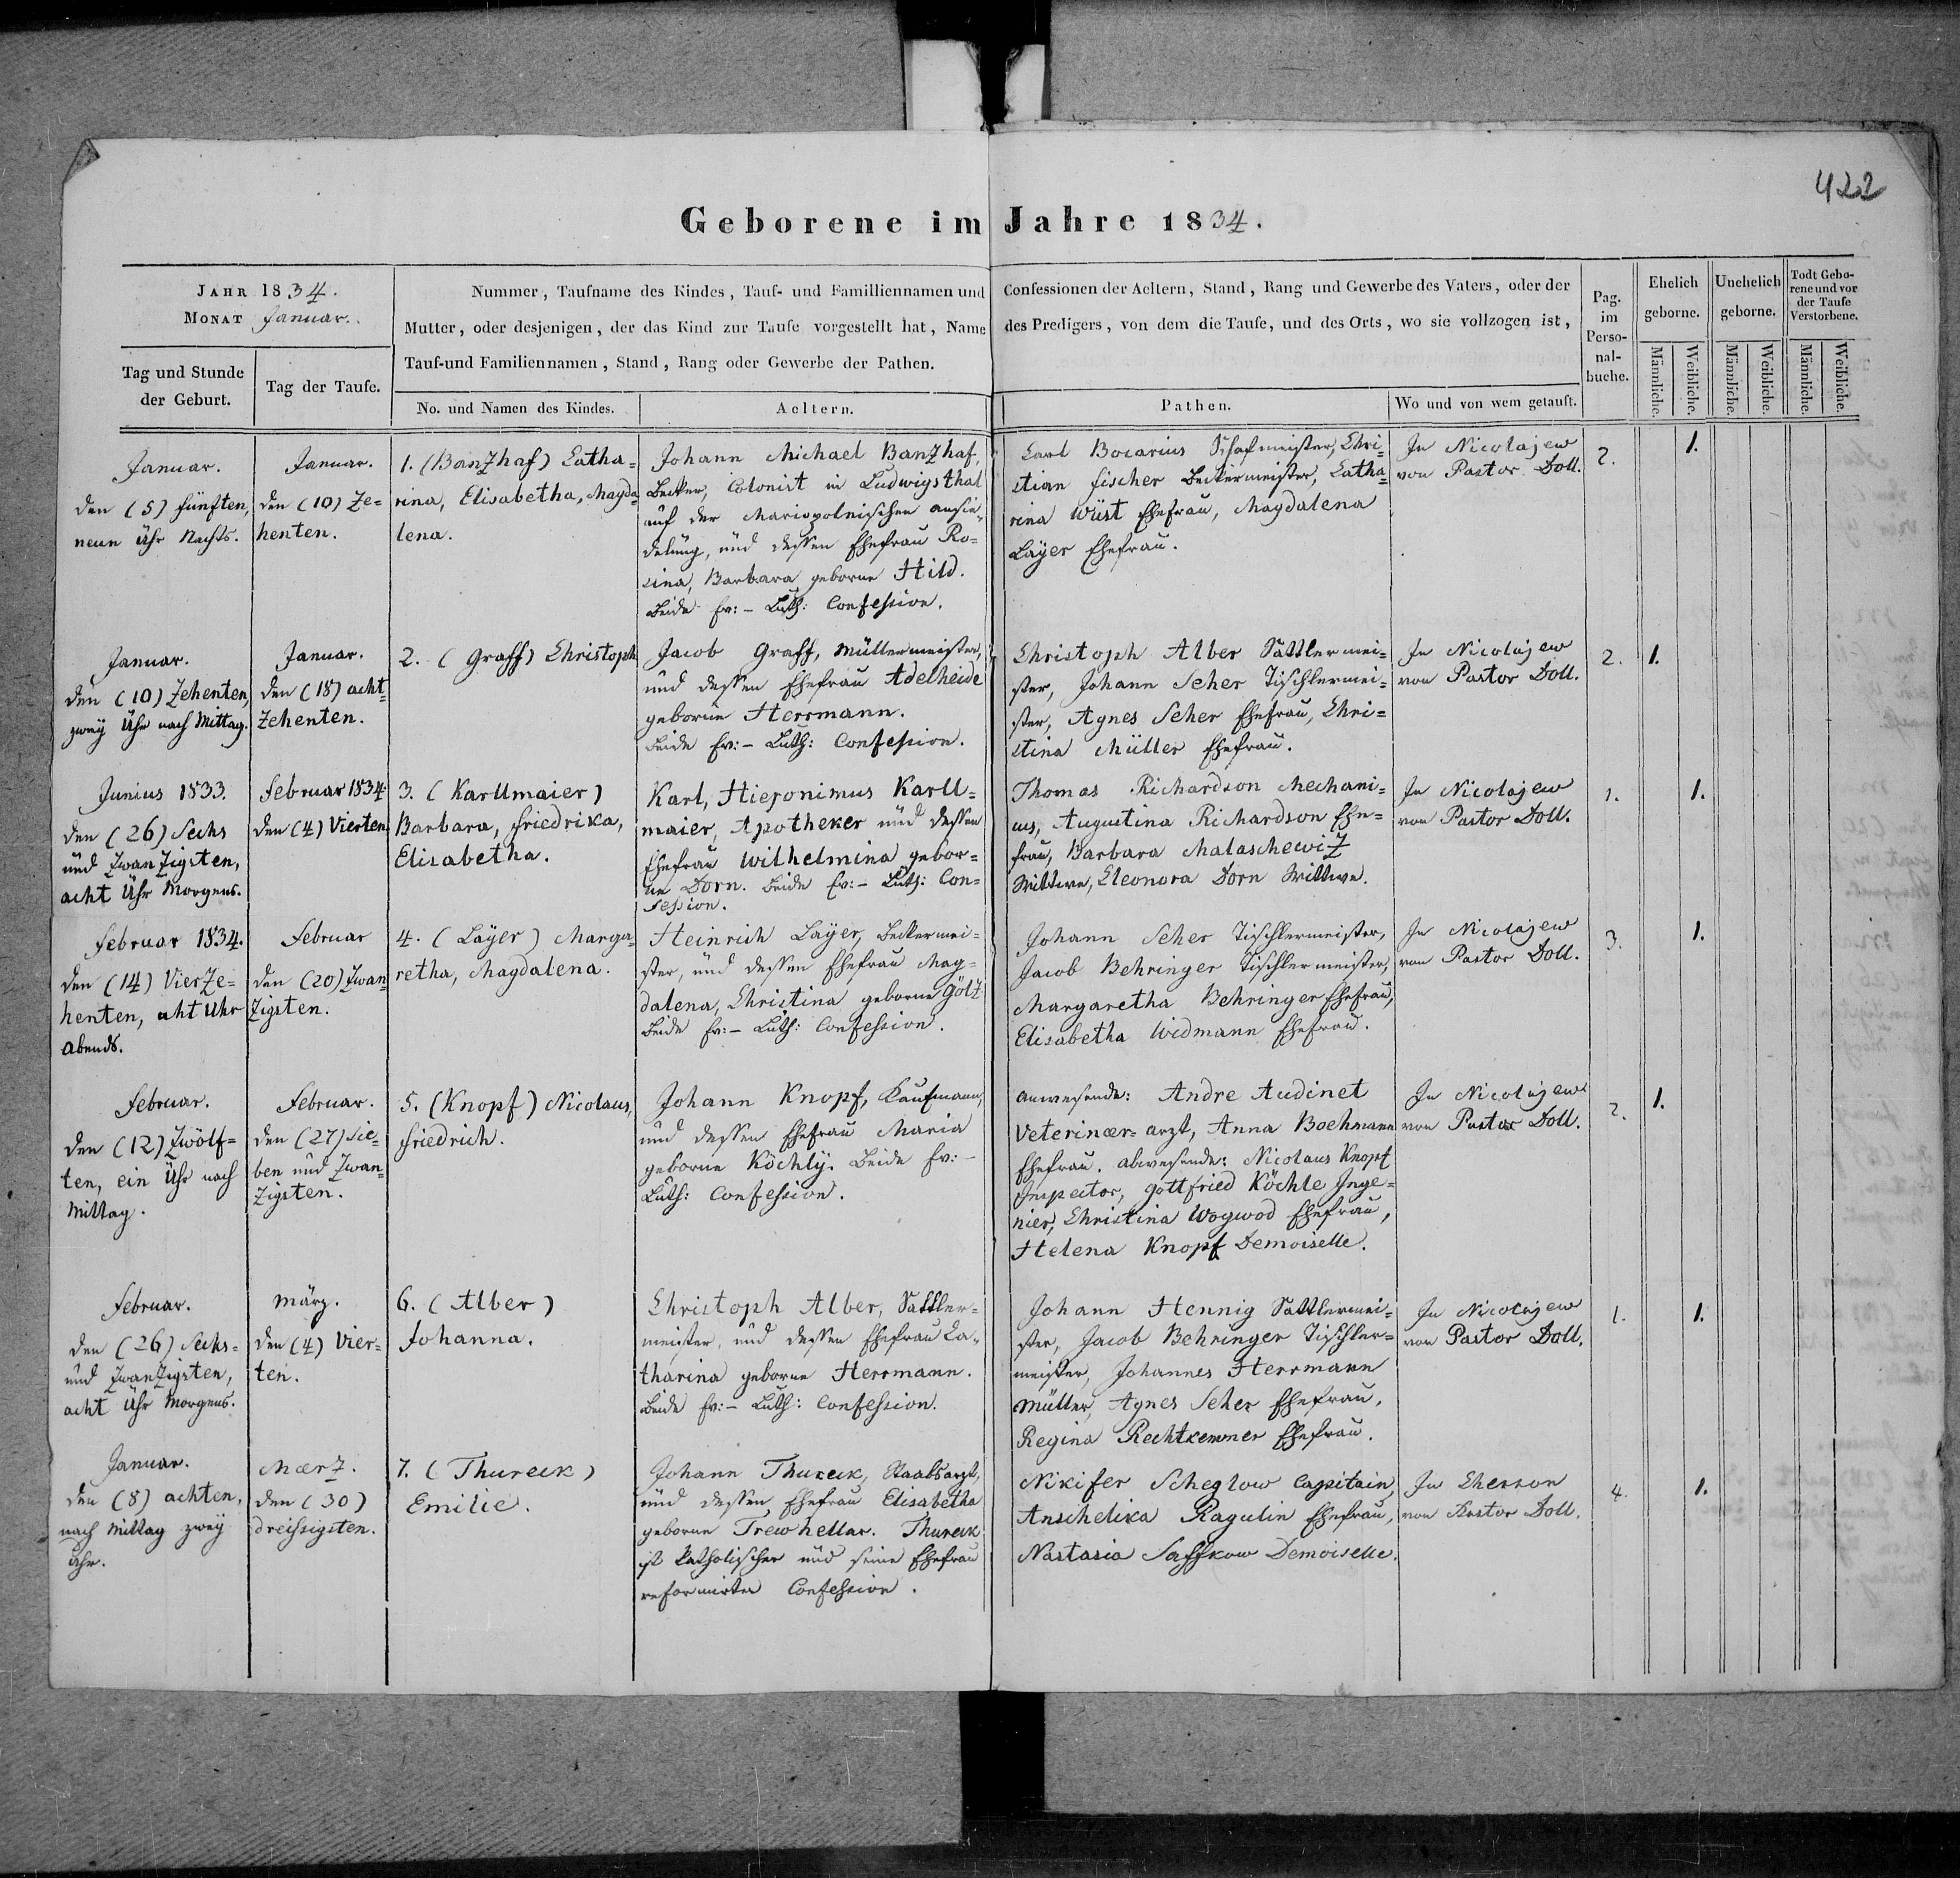 422
Geborene im Jahre 1834.
JAHR 1834.
MONAT Januar.
Nummer, Taufname des Kindes, Tauf- und Familliennamen und Confessionen der Aeltern, Stand, Rang und Gewerbe des Vaters, oder der
Mutter, oder desjenigen, der das Kind zur Taufe vorgestellt hat, Name des Predigers, von dem die Taufe, und des Orts, wo sie vollzogen ist,
Tauf-und Familiennamen, Stand, Rang oder Gewerbe der Pathen.
Pag.
im
Perso-
nal-
buche.
Ehelich
geborne.
Unehelich
geborne.
Todt Gebo-
rene und vor
der Taufe
Verstorbene.
Männliche.
Weibliche.
Männliche.
Weibliche.
Männliche.
Weibliche.
Tag und Stunde
der Geburt.
Tag der Taufe.
No. und Namen des Kindes.
Aeltern.
Pathen.
Wo und von wem getauft.
Januar.
den (5) fünften,
neun Uhr Nachts.
Januar.
den (10) Ze=
henten.
1. (Banzhaf) Catha=
rina, Elisabetha, Magda=
lena.
Johann Michael Banzhaf,
Becker, Colonist in Ludwigsthal
auf der Mariopolnischen ansie=
delung, und dessen Ehefrau Ro=
sina, Barbara geborne Hild.
Beide Ev:- Luth: Confession.
Carl Bocarius Schafmeister, Chri=
stian Fischer Beckermeister, Catha=
rina Wüst Ehefrau, Magdalena
Layer Ehefrau.
In Nicolajew
von Pastor Doll.
2.
1.
Januar.
den (10) Zehenten,
zwey Uhr nach Mittag.
Januar.
den (18) acht
zehenten.
2. (Graff) Christoph
Jacob Graff, Müllermeister,
und dessen Ehefrau Adelheide
geborne Herrmann.
Beide Ev:- Luth: Confession.
Christoph Alber Sattlermei=
ster, Johann Seher Tischlermei=
ster, Agnes Seher Ehefrau, Chri=
stina Müller Ehefrau.
In Nicolajew
von Pastor Doll.
2.
1.
Junius 1833.
den (26) Sechs
und Zwanzigsten,
acht Uhr Morgens.
Februar 1834.
den (4) Vierten
3. (Karllmaier)
Barbara, Friedrika,
Elisabetha.
Karl, Hieronimus Karll=
maier, Apotheker und dessen
Ehefrau Wilhelmina gebor=
ne Dorn. Beide Ev:- Luth: Con=
fession.
Thomas Richardson Mechani=
cus, Augustina Richardson Ehe=
frau, Barbara Malaschewiz
Wittwe, Eleonora Dorn Wittwe.
In Nicolajew
von Pastor Doll.
1.
1.
Februar 1834.
den (14) Vierze=
henten, acht Uhr
Abends.
Februar
den (20) Zwan=
zigsten.
4. (Layer) Marga=
retha, Magdalena.
Heinrich Layer, Beckermei=
ster, und dessen Ehefrau Mag=
dalena, Christina geborne Göltz
Beide Ev:- Luth: Confession.
Johann Seher Tischlermeister,
Jacob Behringer Tischlermeister,
Margaretha Behringer Ehefrau,
Elisabetha Widmann Ehefrau.
In Nicolajew
von Pastor Doll.
3.
1.
Februar.
den (12) Zwölf=
ten, ein Uhr nach
Mittag.
Februar.
den (27) Sie=
ben und Zwan=
zigsten.
5. (Knopf) Nicolaus,
Friedrich.
Johann Knopf, Kaufmann,
und dessen Ehefrau Maria
geborne Köchly. Beide Ev:-
Luth: Confession.
Anwesende: Andre Audinet
Veterinær=arzt, Anna Boehmann
Ehefrau. Abwesende: Nicolaus Knopf
Inspector, Gottfried Köchle Inge=
nier, Christina Wogwod Ehefrau,
Helena Knopf Demoiselle.
In Nicolajew
von Pastor Doll.
2.
1.
Februar.
den (26) Sechs=
und Zwanzigsten,
acht Uhr Morgens.
März.
den (4) Vier=
ten.
6. (Alber)
Johanna.
Christoph Alber, Sattler=
meister, und dessen Ehefrau Ca=
tharina geborne Herrmann.
Beide Ev:- Luth: Confession.
Johann Hennig Sattlermei=
ster, Jacob Behringer Tischler=
meister, Johannes Herrmann
Müller, Agnes Seher Ehefrau,
Regina Rechtkemmer Ehefrau.
In Nicolajew
von Pastor Doll.
1.
1.
Januar.
den (8) achten,
nach Mittag zwey
Uhr.
Mærz.
den (30)
dreissigsten.
7. (Thureck)
Emilie.
Johann Thureck, Staabsarzt,
und dessen Ehefrau Elisabetha
geborne Trewhellar. Thureck
ist Catholischer und seine Ehefrau
reformirter Confession.
Nikifer Scheglow Capitain,
Anschelika Ragulin Ehefrau,
Nastasia Saffkow Demoiselle.
In Cherson
von Pastor Doll.
4.
1.